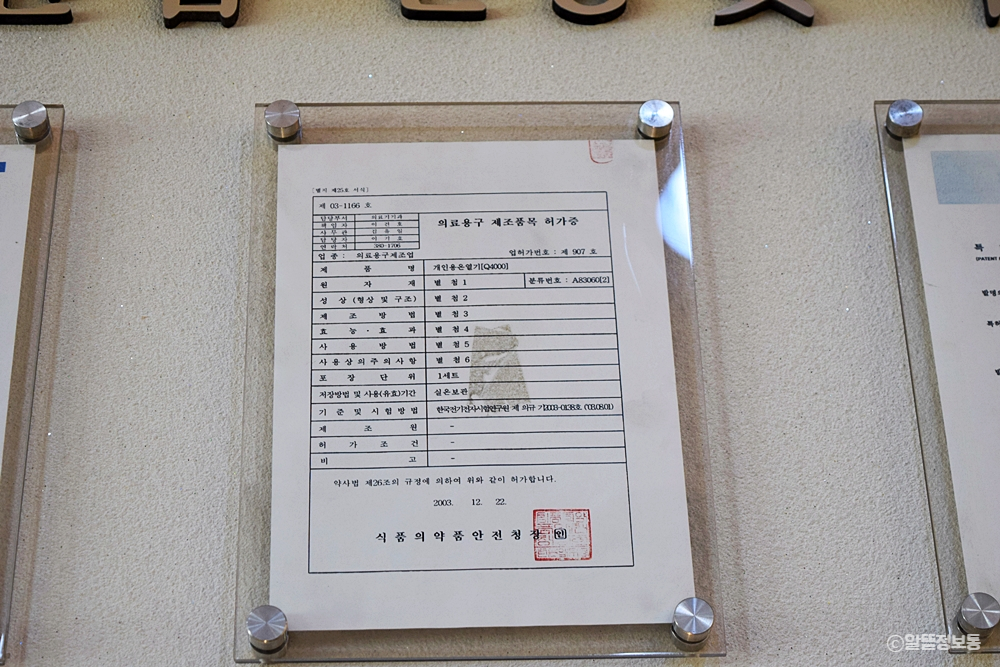 [별지 제25호 서식]
제 03-1166 호
담당부서 의료기기과
책임자 이건호
사무관 김유일
담당자 이기호
연락처 380-1706
의료용구 제조품목 허가증
업종 : 의료용구제조업
업허가번호 : 제 907 호
제품명 개인용온열기[Q4000]
원자재 별첨1 분류번호 : A83060[2]
성상(형상 및 구조) 별첨2
제조방법 별첨3
효능·효과 별첨4
사용방법 별첨5
사용상의주의사항 별첨6
포장단위 1세트
저장방법 및 사용(유효)기간 실온보관
기준및시험방법 한국전기전자시험연구원 제 의규 기2003-0138호 ('03.08.01)
제조원 -
허가조건 -
비고 -
약사법 제26조의 규정에 의하여 위와 같이 허가합니다.
2003. 12. 22.
식품의약품안전청장 인
특
(PATENT
발명의
특허
발
©알뜰정보통